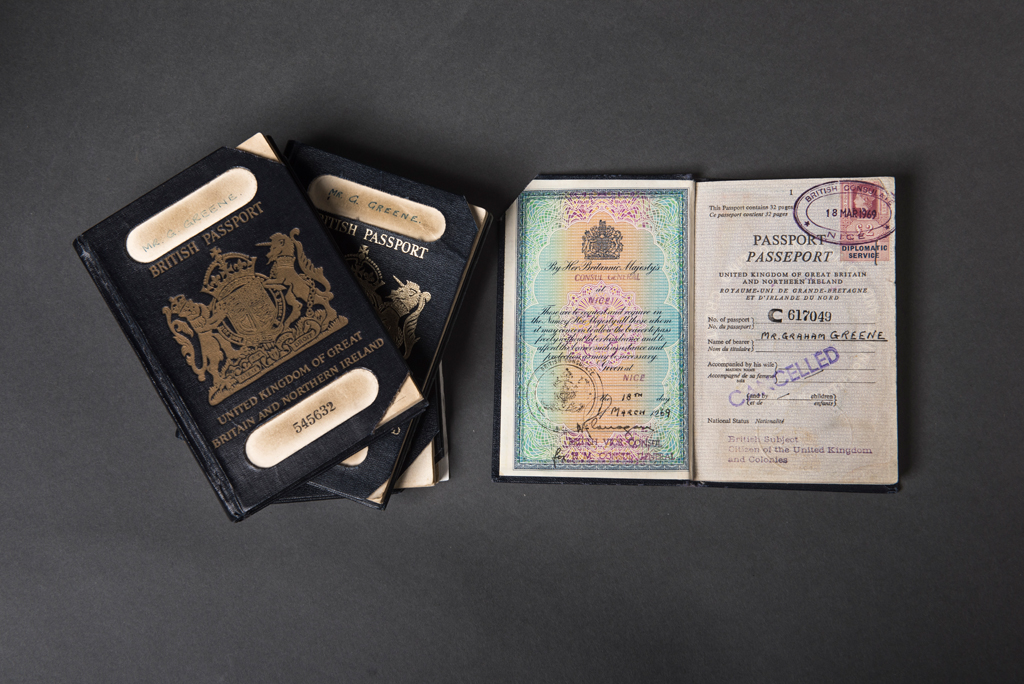 MR. G. GREENE.
BRITISH PASSPORT
UNITED KINGDOM OF GREAT
BRITAIN AND NORTHERN IRELAND
545632
MR. G. GREENE.
BRITISH PASSPORT
By Her Britannic Majesty's
CONSUL GENERAL
at
NICE
These are to request and require in
the Name of Her Majesty all those whom
it may concern to allow the bearer to pass
freely without let or hindrance and to
afford the bearer such assistance and
protection as may be necessary.
Given at
NICE
18TH day
of MARCH 1969
BRITISH VICE CONSUL
for H.M. CONSUL GENERAL
1
This Passport contains 32 pages
Ce passeport contient 32 pages
BRITISH CONSULATE
18 MAR 1969
NICE
DIPLOMATIC
SERVICE
PASSPORT
PASSEPORT
UNITED KINGDOM OF GREAT BRITAIN
AND NORTHERN IRELAND
ROYAUME-UNI DE GRANDE-BRETAGNE
ET D'IRLANDE DU NORD
No. of passport
No. du passeport
C 617049
Name of bearer
Nom du titulaire
MR. GRAHAM GREENE
Accompanied by his wife
MAIDEN NAME
Accompagné de sa femme
NEE
CANCELLED
and by children
et de enfants
National Status Nationalité
British Subject
Citizen of the United Kingdom
and Colonies